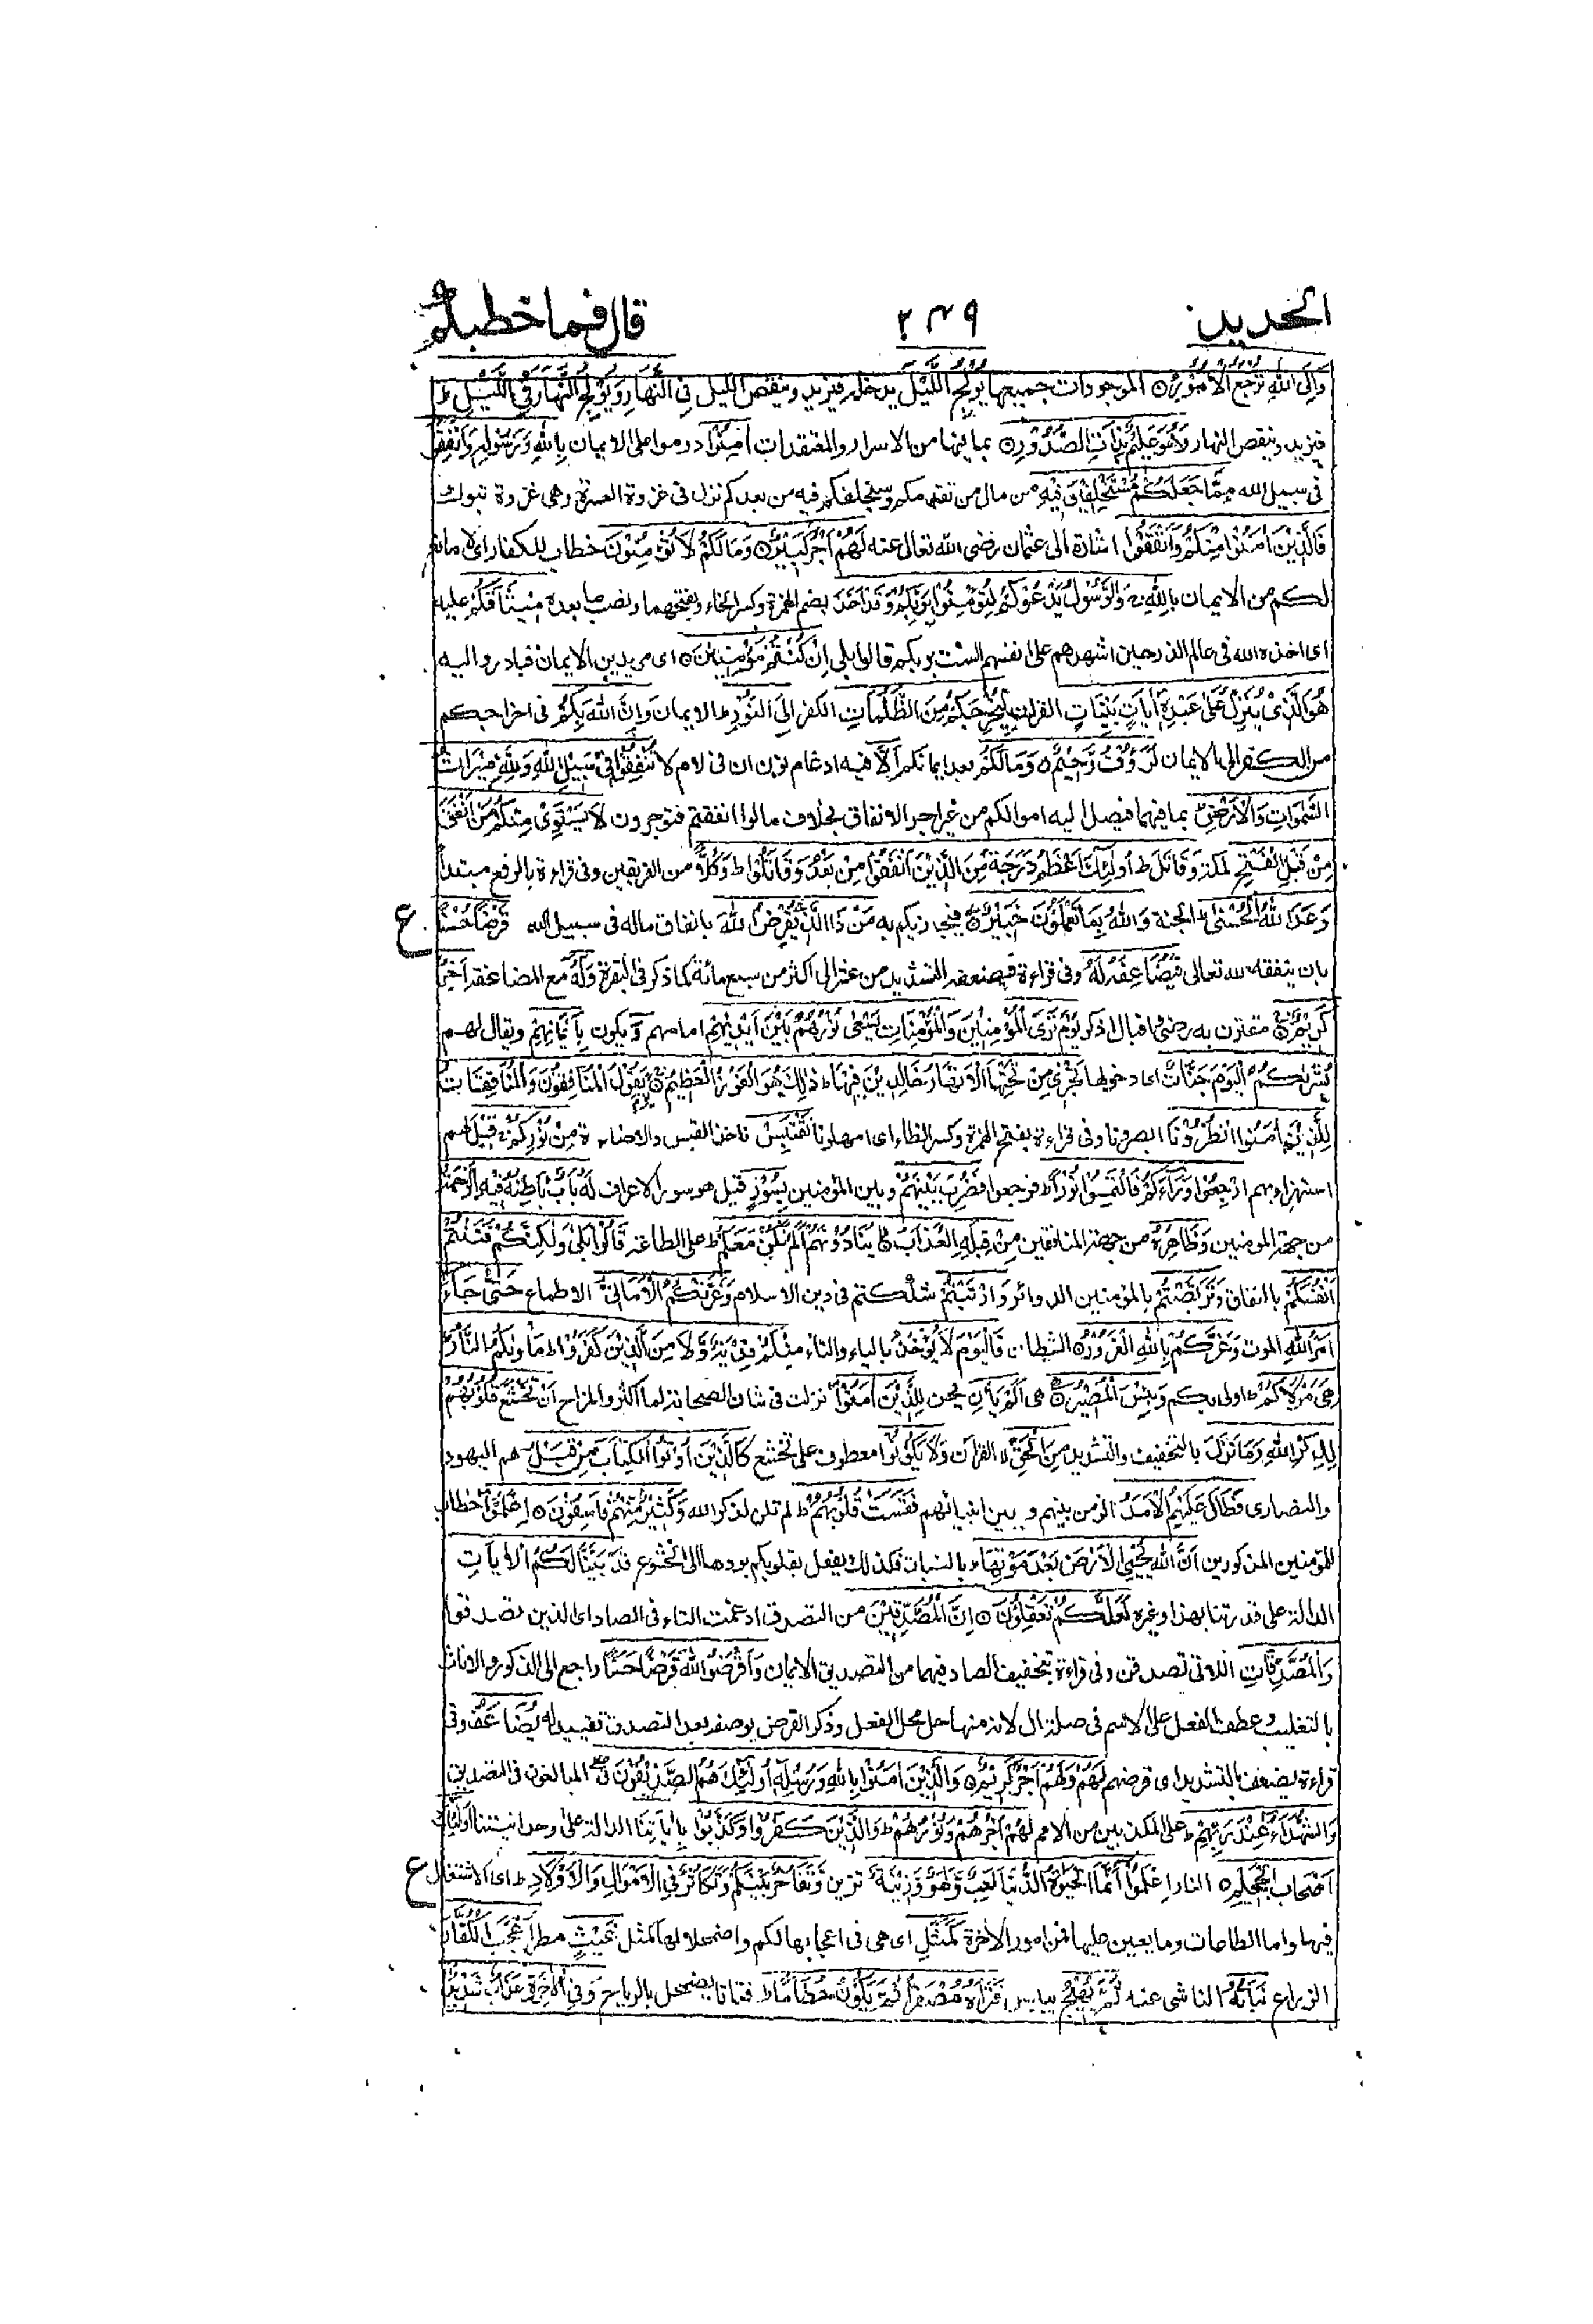 الحديد
٢٤٩
قال فما خطبكم
وَاِلَى اللهِ تُرْجَعُ الْاُمُوْرُ الموجودات جميعها يُوْلِجُ اللَّيْلَ يدخله فيزيد وينقص الليل فِى النَّهَارِ وَيُوْلِجُ النَّهَارَ فِى اللَّيْلِ ط
فيزيد وينقص النهار وَهُوَ عَلِيْمٌ بِذَاتِ الصُّدُوْرِ بما فيها من الاسرار والمعتقدات اٰمِنُوْا دوموا على الايمان بِاللهِ وَرَسُوْلِهٖ وَاَنْفِقُوْا
فى سبيل الله مِمَّا جَعَلَكُمْ مُسْتَخْلَفِيْنَ فِيْهِ من مال من تقدمكم وسيخلفكم فيه من بعدكم نزل فى غزوة العسرة وهى غزوة تبوك
فَالَّذِيْنَ اٰمَنُوْا مِنْكُمْ وَاَنْفَقُوْا اشارة الى عثمان رضى الله تعالى عنه لَهُمْ اَجْرٌ كَبِيْرٌ وَمَا لَكُمْ لَا تُؤْمِنُوْنَ خطاب للكفار اى لا مانع
لكم من الايمان بِاللهِ ج وَالرَّسُوْلُ يَدْعُوْكُمْ لِتُؤْمِنُوْا بِرَبِّكُمْ وَقَدْ اَخَذَ بضم الهمزة وكسر الخاء وبفتحهما ونصب ما بعده مِيْثَاقَكُمْ عليه
اى اخذه الله فى عالم الذر حين اشهدهم على انفسهم الست بربكم قالوا بلى اِنْ كُنْتُمْ مُؤْمِنِيْنَ اى مريدين الايمان فبادروا اليه
هُوَ الَّذِىْ يُنَزِّلُ عَلٰى عَبْدِهٖ اٰيَاتٍ بَيِّنَاتٍ القران لِيُخْرِجَكُمْ مِنَ الظُّلُمَاتِ الكفر اِلَى النُّوْرِ ط الايمان وَاِنَّ اللهَ بِكُمْ فى اخراجكم
من الكفر الى الايمان لَرَءُوْفٌ رَحِيْمٌ وَمَا لَكُمْ بعد ايمانكم اَلَّا فيه ادغام نون ان فى لام لا تُنْفِقُوْا فِىْ سَبِيْلِ اللهِ وَلِلّٰهِ مِيْرَاثُ
السَّمٰوَاتِ وَالْاَرْضِ ط بما فيهما فيصل اليه اموالكم من غير اجر الانفاق بخلاف مالوا انفقتم فتوجرون لَا يَسْتَوِىْ مِنْكُمْ مَنْ اَنْفَقَ
مِنْ قَبْلِ الْفَتْحِ لمكة وَقَاتَلَ ط اُولٰئِكَ اَعْظَمُ دَرَجَةً مِنَ الَّذِيْنَ اَنْفَقُوْا مِنْ بَعْدُ وَقَاتَلُوْا ط وَكُلًّا من الفريقين وفى قراءة بالرفع مبتدأ
وَعَدَ اللهُ الْحُسْنٰى ط الجنة وَاللهُ بِمَا تَعْمَلُوْنَ خَبِيْرٌ فيجازيكم به مَنْ ذَا الَّذِىْ يُقْرِضُ اللهَ بانفاق ماله فى سبيل الله قَرْضًا حَسَنًا
ع
بان ينفقه لله تعالى فَيُضَاعِفَهُ لَهُ وفى قراءة فيضعفه التشديد من عشر الى اكثر من سبع مائة كما ذكر فى البقرة وَلَهُ مع المضاعفة اَجْرٌ
كَرِيْمٌ مقترن به رضى واقبال اذكر يَوْمَ تَرَى الْمُؤْمِنِيْنَ وَالْمُؤْمِنَاتِ يَسْعٰى نُوْرُهُمْ بَيْنَ اَيْدِيْهِمْ امامهم وَ يكون بِاَيْمَانِهِمْ ويقال لهم
بُشْرٰىكُمُ الْيَوْمَ جَنَّاتٌ اى دخولها تَجْرِىْ مِنْ تَحْتِهَا الْاَنْهَارُ خَالِدِيْنَ فِيْهَا ط ذٰلِكَ هُوَ الْفَوْزُ الْعَظِيْمُ يَوْمَ يَقُوْلُ الْمُنَافِقُوْنَ وَالْمُنَافِقَاتُ
لِلَّذِيْنَ اٰمَنُوا انْظُرُوْنَا ابصرونا وفى قراءة بفتح الهمزة وكسر الظاء اى امهلونا نَقْتَبِسْ ناخذ القبس والاضاءة مِنْ نُوْرِكُمْ ج قِيْلَ لهم
استهزاء بهم ارْجِعُوْا وَرَاءَكُمْ فَالْتَمِسُوْا نُوْرًا ط فرجعوا فَضُرِبَ بَيْنَهُمْ وبين المؤمنين بِسُوْرٍ قيل هو سور الاعراف لَهُ بَابٌ بَاطِنُهُ فِيْهِ الرَّحْمَةُ
من جهة المومنين وَظَاهِرُهُ من جهة المنافقين مِنْ قِبَلِهِ الْعَذَابُ ط يُنَادُوْنَهُمْ اَلَمْ نَكُنْ مَعَكُمْ ط على الطاعة قَالُوْا بَلٰى وَلٰكِنَّكُمْ فَتَنْتُمْ
اَنْفُسَكُمْ باالنفاق وَتَرَبَّصْتُمْ بالمؤمنين الدوائر وَارْتَبْتُمْ شككتم فى دين الاسلام وَغَرَّتْكُمُ الْاَمَانِىُّ الاطماع حَتّٰى جَاءَ
اَمْرُ اللهِ الموت وَغَرَّكُمْ بِاللهِ الْغَرُوْرُ الشيطان فَالْيَوْمَ لَا يُؤْخَذُ بالياء والتاء مِنْكُمْ فِدْيَةٌ وَّلَا مِنَ الَّذِيْنَ كَفَرُوْا ط مَاْوٰىكُمُ النَّارُ ط
هِىَ مَوْلٰىكُمْ ط اولى بكم وَبِئْسَ الْمَصِيْرُ هى اَلَمْ يَاْنِ يحن لِلَّذِيْنَ اٰمَنُوْا نزلت فى شان الصحابة لما اكثروا المزاح اَنْ تَخْشَعَ قُلُوْبُهُمْ
لِذِكْرِ اللهِ وَمَا نَزَلَ بالتخفيف والتشديد مِنَ الْحَقِّ لا القرآن وَلَا يَكُوْنُوْا معطوف على تخشع كَالَّذِيْنَ اُوْتُوا الْكِتَابَ مِنْ قَبْلُ هم اليهود
والنصارى فَطَالَ عَلَيْهِمُ الْاَمَدُ الزمن بينهم وبين انبيائهم فَقَسَتْ قُلُوْبُهُمْ ط لم تلن لذكر الله وَكَثِيْرٌ مِنْهُمْ فَاسِقُوْنَ اِعْلَمُوْا خطاب
للمؤمنين المذكورين اَنَّ اللهَ يُحْيِى الْاَرْضَ بَعْدَ مَوْتِهَا ط بالنبات فكذلك يفعل بقلوبكم بردها الى الخشوع قَدْ بَيَّنَّا لَكُمُ الْاٰيَاتِ
الدالة على قدرتنا بهذا وغيره لَعَلَّكُمْ تَعْقِلُوْنَ اِنَّ الْمُصَّدِّقِيْنَ من التصدق ادغمت التاء فى الصاد اى الذين تصدقوا
وَالْمُصَّدِّقَاتِ اللاتى تصدقن وفى قراءة بتخفيف الصاد فيهما من التصديق الايمان وَاَقْرَضُوا اللهَ قَرْضًا حَسَنًا راجع الى الذكور والاناث
بالتغليب وعطف الفعل على الاسم فى صلة ال لانه منها حل محل الفعل وذكر القرض بوصفه بعد التصدق تقييد له يُضَاعَفُ وفى
قراءة يضعف بالتشديد اى قرضهم لَهُمْ وَلَهُمْ اَجْرٌ كَرِيْمٌ وَالَّذِيْنَ اٰمَنُوْا بِاللهِ وَرُسُلِهٖ اُولٰئِكَ هُمُ الصِّدِّيْقُوْنَ المبالغون فى التصديق
وَالشُّهَدَاءُ عِنْدَ رَبِّهِمْ ط على المكذبين من الامم لَهُمْ اَجْرُهُمْ وَنُوْرُهُمْ ط وَالَّذِيْنَ كَفَرُوْا وَكَذَّبُوْا بِاٰيَاتِنَا الدالة على وحدانيتنا اُولٰئِكَ
اَصْحَابُ الْجَحِيْمِ النار اِعْلَمُوْا اَنَّمَا الْحَيٰوةُ الدُّنْيَا لَعِبٌ وَّلَهْوٌ وَّزِيْنَةٌ تزين وَتَفَاخُرٌ بَيْنَكُمْ وَتَكَاثُرٌ فِى الْاَمْوَالِ وَالْاَوْلَادِ ط اى الاشتغال
ع
فيها واما الطاعات وما يعين عليها فمن امور الآخرة كَمَثَلِ اى هى فى اعجابها لكم واضمحلالها كمثل غَيْثٍ مطر اَعْجَبَ الْكُفَّارَ
الزراع نَبَاتُهُ الناشى عنه ثُمَّ يَهِيْجُ ييبس فَتَرَاهُ مُصْفَرًّا ثُمَّ يَكُوْنُ حُطَامًا ط فتاتا يضمحل بالرياح وَفِى الْاٰخِرَةِ عَذَابٌ شَدِيْدٌ